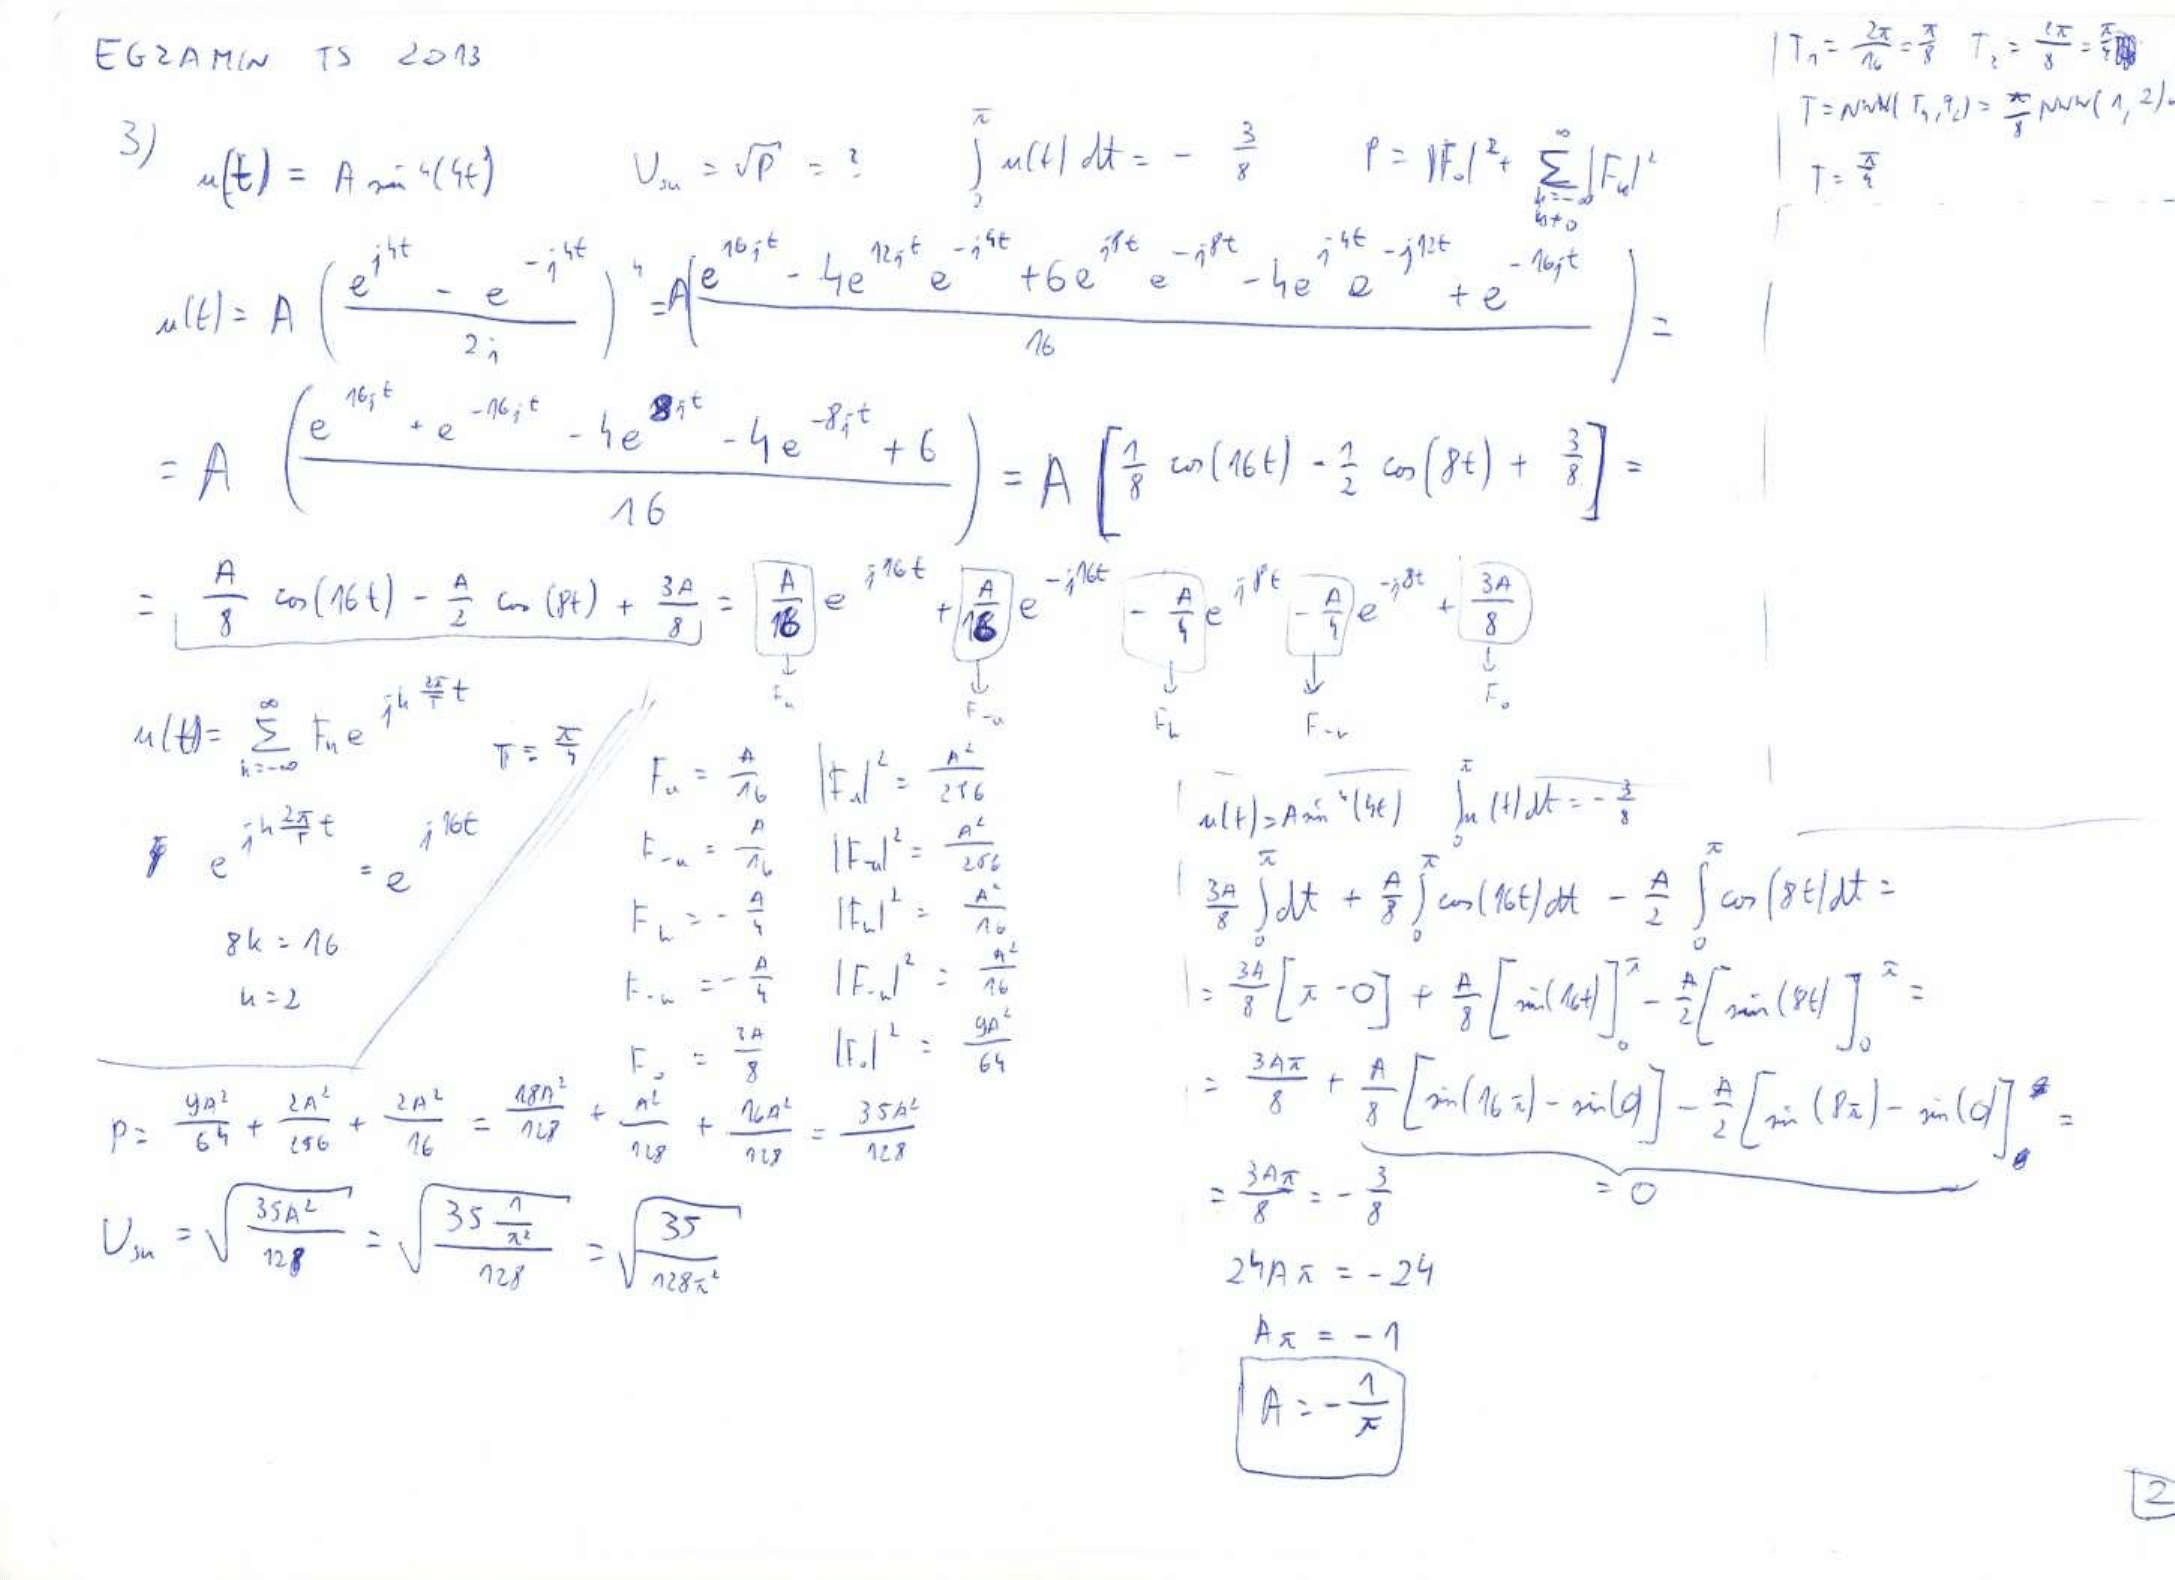 EGZAMIN TS 2013
T₁ = 2π/16 = π/8 T₂ = 2π/8 = π/4
T = NWW(T₁, T₂) = π/8 NWW(1, 2)
T = π/4
3) u(t) = A sin⁴(4t) U_sk = √P = ? ∫₀^π u(t) dt = - 3/8 P = |F₀|² + ∑_{k=-∞, k≠0}^∞ |F_k|²
u(t) = A ( (e^{j4t} - e^{-j4t}) / 2j )⁴ = A ( (e^{16jt} - 4e^{12jt} e^{-j4t} + 6e^{j8t} e^{-j8t} - 4e^{j4t} e^{-j12t} + e^{-16jt}) / 16 ) =
= A ( (e^{16jt} + e^{-16jt} - 4e^{8jt} - 4e^{-8jt} + 6) / 16 ) = A [ 1/8 cos(16t) - 1/2 cos(8t) + 3/8 ] =
= A/8 cos(16t) - A/2 cos(8t) + 3A/8 = A/16 e^{j16t} + A/16 e^{-j16t} - A/4 e^{j8t} - A/4 e^{-j8t} + 3A/8
↓ F_k ↓ F_{-k} ↓ F_k ↓ F_{-k} ↓ F₀
u(t) = ∑_{k=-∞}^∞ F_k e^{jk 2π/T t} T = π/4
e^{jk 2π/T t} = e^{j16t}
8k = 16
k = 2
F_k = A/16 |F_k|² = A²/256
F_{-k} = A/16 |F_{-k}|² = A²/256
F_k = - A/4 |F_k|² = A²/16
F_{-k} = - A/4 |F_{-k}|² = A²/16
F₀ = 3A/8 |F₀|² = 9A²/64
P = 9A²/64 + 2A²/256 + 2A²/16 = 18A²/128 + A²/128 + 16A²/128 = 35A²/128
U_sk = √(35A²/128) = √(35 1/π² / 128) = √(35/128π²)
u(t) = A sin⁴(4t) ∫₀^π u(t) dt = - 3/8
3A/8 ∫₀^π dt + A/8 ∫₀^π cos(16t) dt - A/2 ∫₀^π cos(8t) dt =
= 3A/8 [π - 0] + A/8 [sin(16t)]₀^π - A/2 [sin(8t)]₀^π =
= 3Aπ/8 + A/8 [sin(16π) - sin(0)] - A/2 [sin(8π) - sin(0)] =
= 0
= 3Aπ/8 = - 3/8
24Aπ = -24
Aπ = -1
A = - 1/π
2